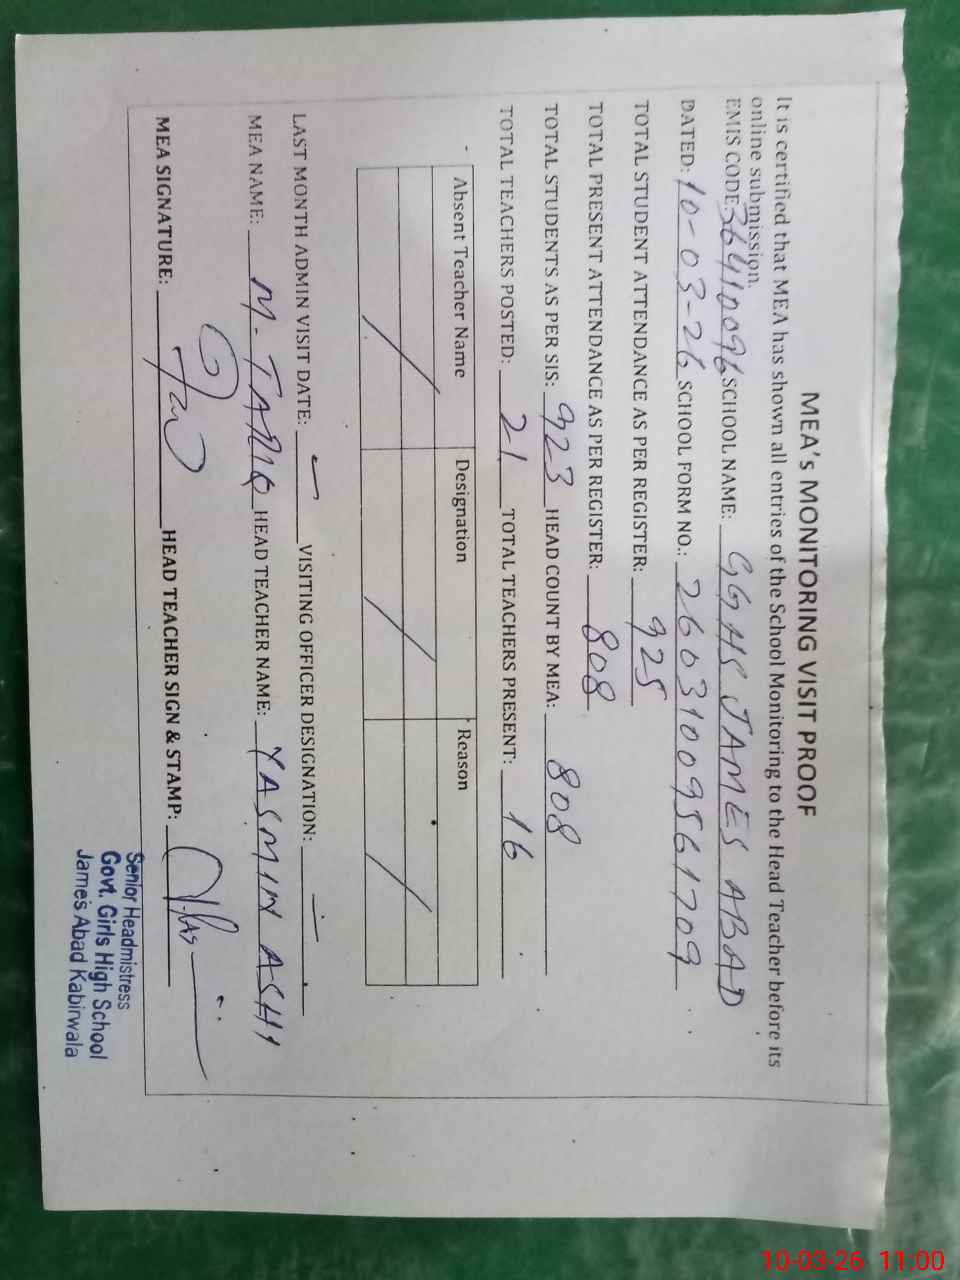 MEA's MONITORING VISIT PROOF
It is certified that MEA has shown all entries of the School Monitoring to the Head Teacher before its
online submission.
EMIS CODE 36410096 SCHOOL NAME: GGHS JAMES ABAD
DATED: 10-03-26 SCHOOL FORM NO.: 26031009561709
TOTAL STUDENT ATTENDANCE AS PER REGISTER: 925
TOTAL PRESENT ATTENDANCE AS PER REGISTER: 808
TOTAL STUDENTS AS PER SIS: 923 HEAD COUNT BY MEA: 808
TOTAL TEACHERS POSTED: 21 TOTAL TEACHERS PRESENT: 16
Absent Teacher Name Designation Reason
/ / /
LAST MONTH ADMIN VISIT DATE: – VISITING OFFICER DESIGNATION: –
MEA NAME: M. TARIQ HEAD TEACHER NAME: YASMIN ASHI
MEA SIGNATURE: HEAD TEACHER SIGN & STAMP:
Senior Headmistress
Govt. Girls High School
James Abad Kabirwala
10-03-26 11:00